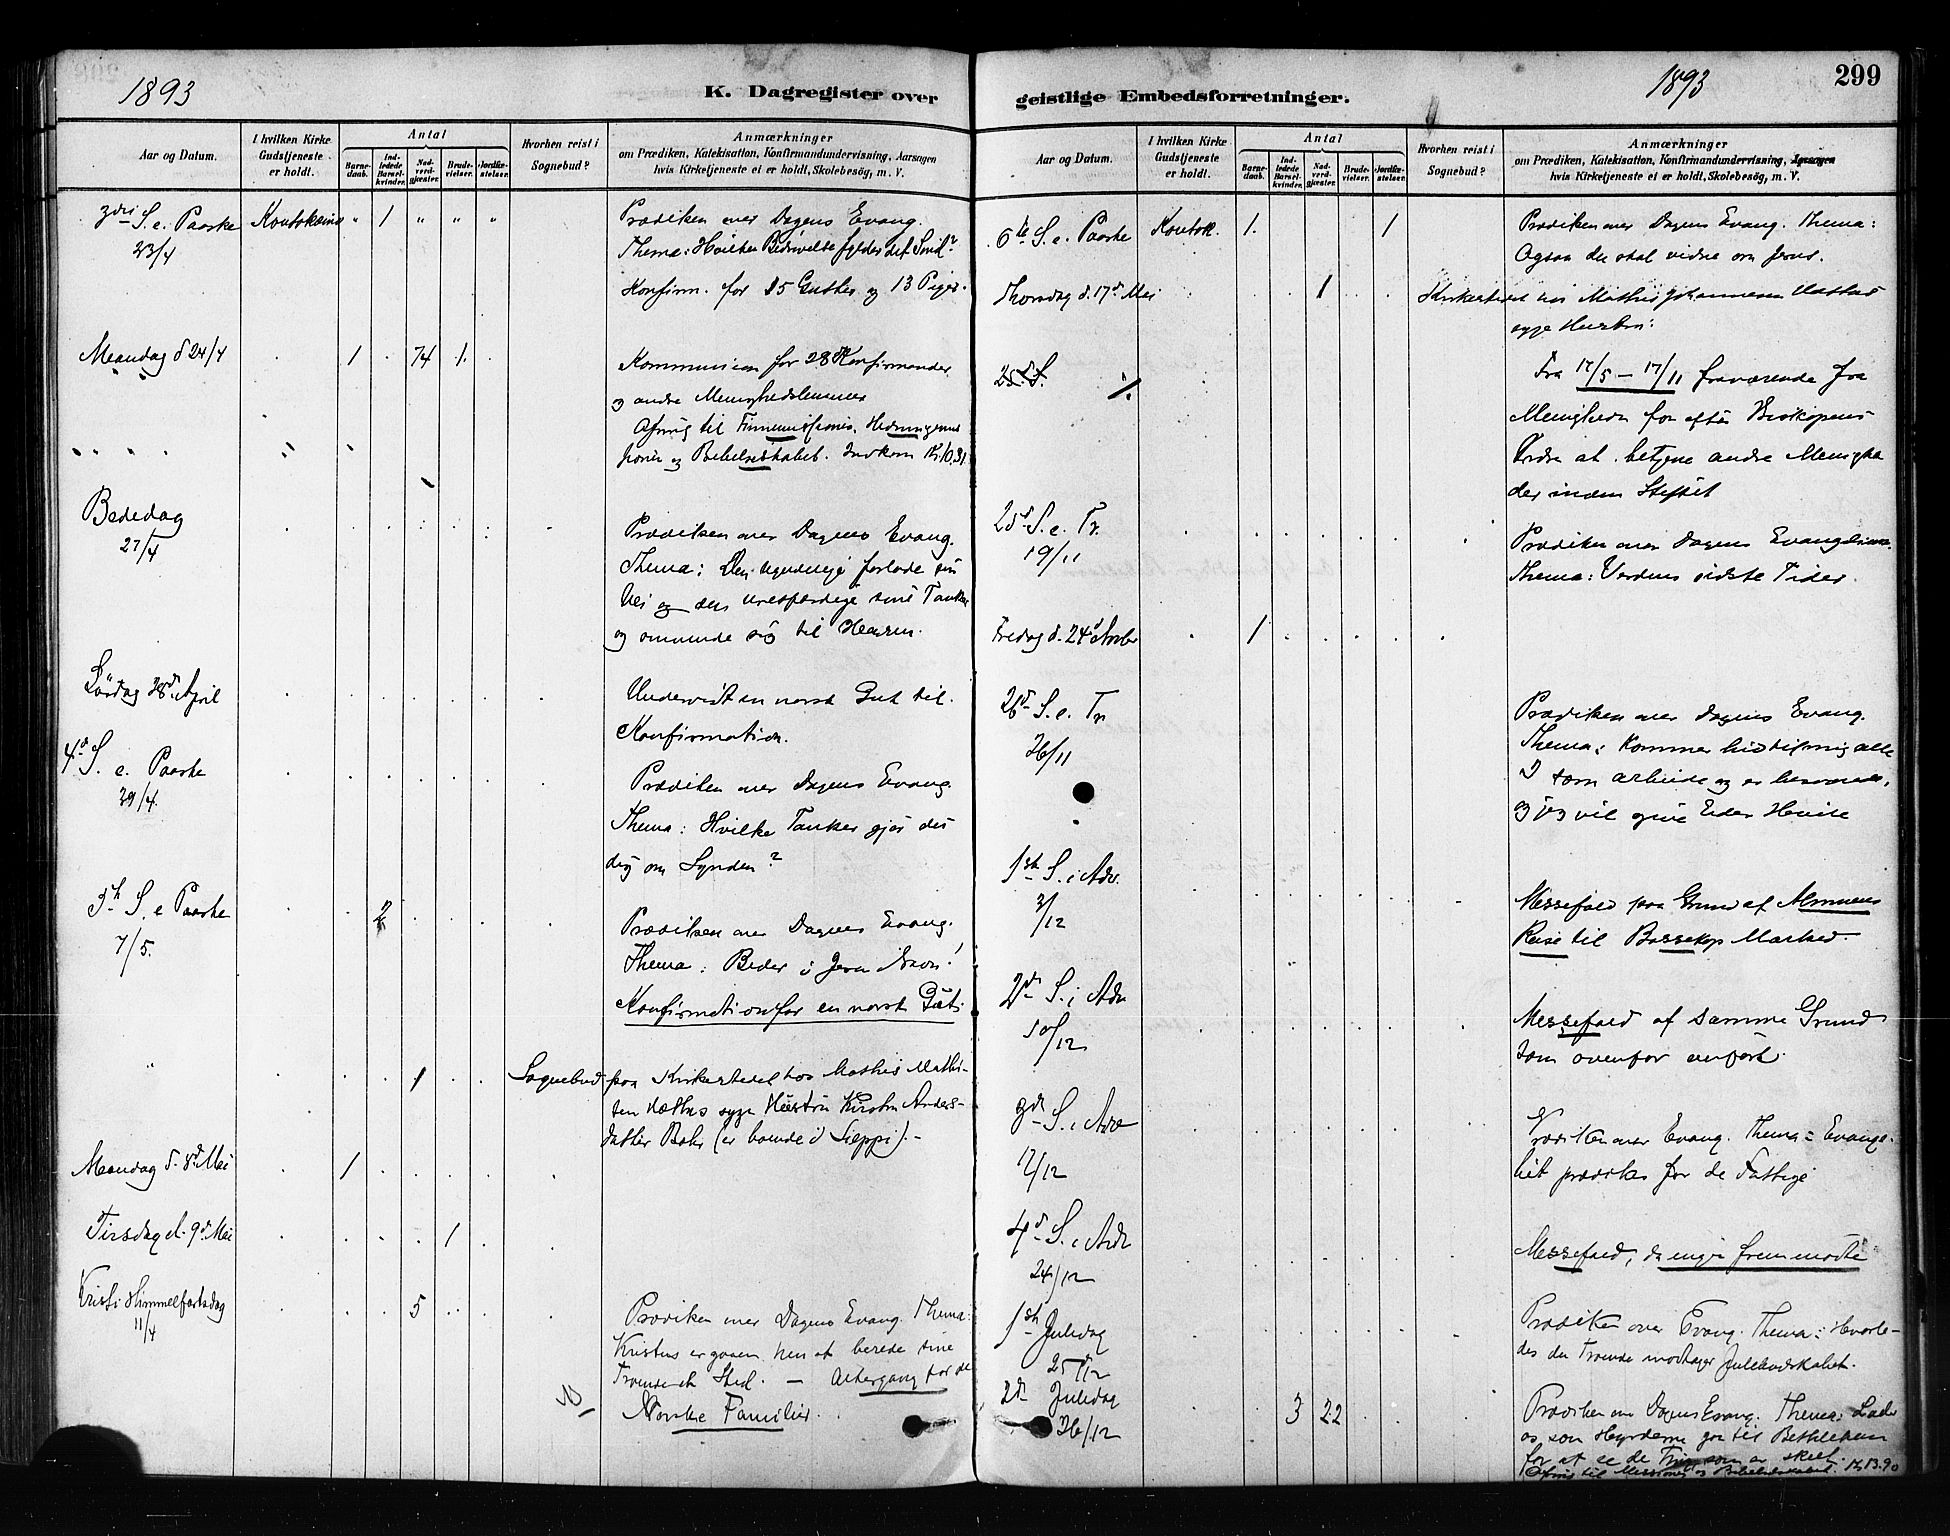 1893
K. Dagregister over
Aar og Datum.
I hvilken Kirke Gudstjeneste er holdt.
Antal
Barnedaab.
Indledede Barselkvinder.
Nadverdgjæster.
Brudevielser.
Jordfæstelser.
Hvorhen reist i Sognebud?
Anmærkninger
om Prædiken, Katekisation, Konfirmandundervisning, Aarsagen
hvis Kirketjeneste ei er holdt, Skolebesög, m. V.
3die S. e. Paaske Koutokeino " 1 " " " Prædiken over Dagens Evang.
23/4 Thema: Det Smil?
Konfirm. for 15 Gutter og 13 Piger.
Mandag d 24/4 1 74 1. Kommunion for 28 Konfirmander
og andre Menighedslemmer
Ofring til Finnemissionen, Hedningemis
sionen og Bibelselskabet. Indkom Kr. 10,31
Bededag
27/4 Prædiken over Dagens Evang.
Thema: Den ugudelige forlade sin
Vei og den uretfærdige sine Tanker
og omvende sig til Herren.
Lördag 28d April Undervist en norsk Gut til
Konfirmation.
4d S. e. Paaske
29/4. Prædiken over Dagens Evang.
Thema: Hvilke Tanker gjør du
dig om Synden?
5th S. e Paaske 2 Prædiken over Dagens Evang.
7/5. Thema: Beder i Jesu Navn!
Konfirmation for en norsk Gut.
1 Sognebud paa Kirkestedet hos Mathis Mathi-
sen Hættas syge Hustru Kirsten Anders-
datter Bahr (er boende i Sieppi).-
Mandag d. 8d Mai 1
Tirsdag d. 9d Mai 1
Kristi Himmelfartsdag
11/4 5 Prædiken over Dagens Evang. Thema:
Kristus er gaaen hen at berede sine
Troende et Sted. — Altergang for de
Norske Familier.
1893 299
geistlige Embedsforretninger.
Aar og Datum.
I hvilken Kirke Gudstjeneste er holdt.
Antal
Barnedaab.
Indledede Barselkvinder.
Nadverdgjæster.
Brudevielser.
Jordfæstelser.
Hvorhen reist i Sognebud?
Anmærkninger
om Prædiken, Katekisation, Konfirmandundervisning, Aarsagen
hvis Kirketjeneste ei er holdt, Skolebesög, m. V.
6te S. e. Paaske Koutok. 1. 1 Prædiken over Dagens Evang. Thema:
Ogsaa du skal vidne om Jesus.
Thorsdag d. 17d Mai 1 Kirkestedet hos Mathis Johannesen Hættas
syge Hustru:
25d S. ./. Fra 17/5 — 17/11 fraværende fra
Menigheden for efter Biskopens
Ordre at betjene andre Menighe
der inden Stiftet
25d S. e. Tr.
19/11 Prædiken over Dagens Evangelium.
Thema: Verdens sidste Tider.
Fredag d. 24d Novbr 1
26d S. e. Tr
26/11 Prædiken over Dagens Evang.
Thema: Kommer hid til mig alle
I som arbeide og er besværede,
og jeg vil give Eder Hvile
1ste S. i Adv.
3/12 Messefald paa Grund af Almuens
Reise til Bossekop Marked.
2d S. i Adv
10/12 Messefald af samme Grund
som ovenfor anført.
3die S. i Adv
17/12 Prædiken over Evang. Thema: Evange-
liet prædikes for de Fattige
4d S. i Adv
24/12 Messefald, da ingen fremmødte
1ste Juledag
25d/12 Prædiken over Evang. Thema: Hvorle-
des de Troende modtager Julebudskabet.
2d Juledag
26/12 3 22 Prædiken over Dagens Evang. Thema: Lader
os som Hyrderne gaa til Bethlehem
for at se de Ting som er skeet.
Ofring til Missionen og Bibelselskabet. Kr 13.90